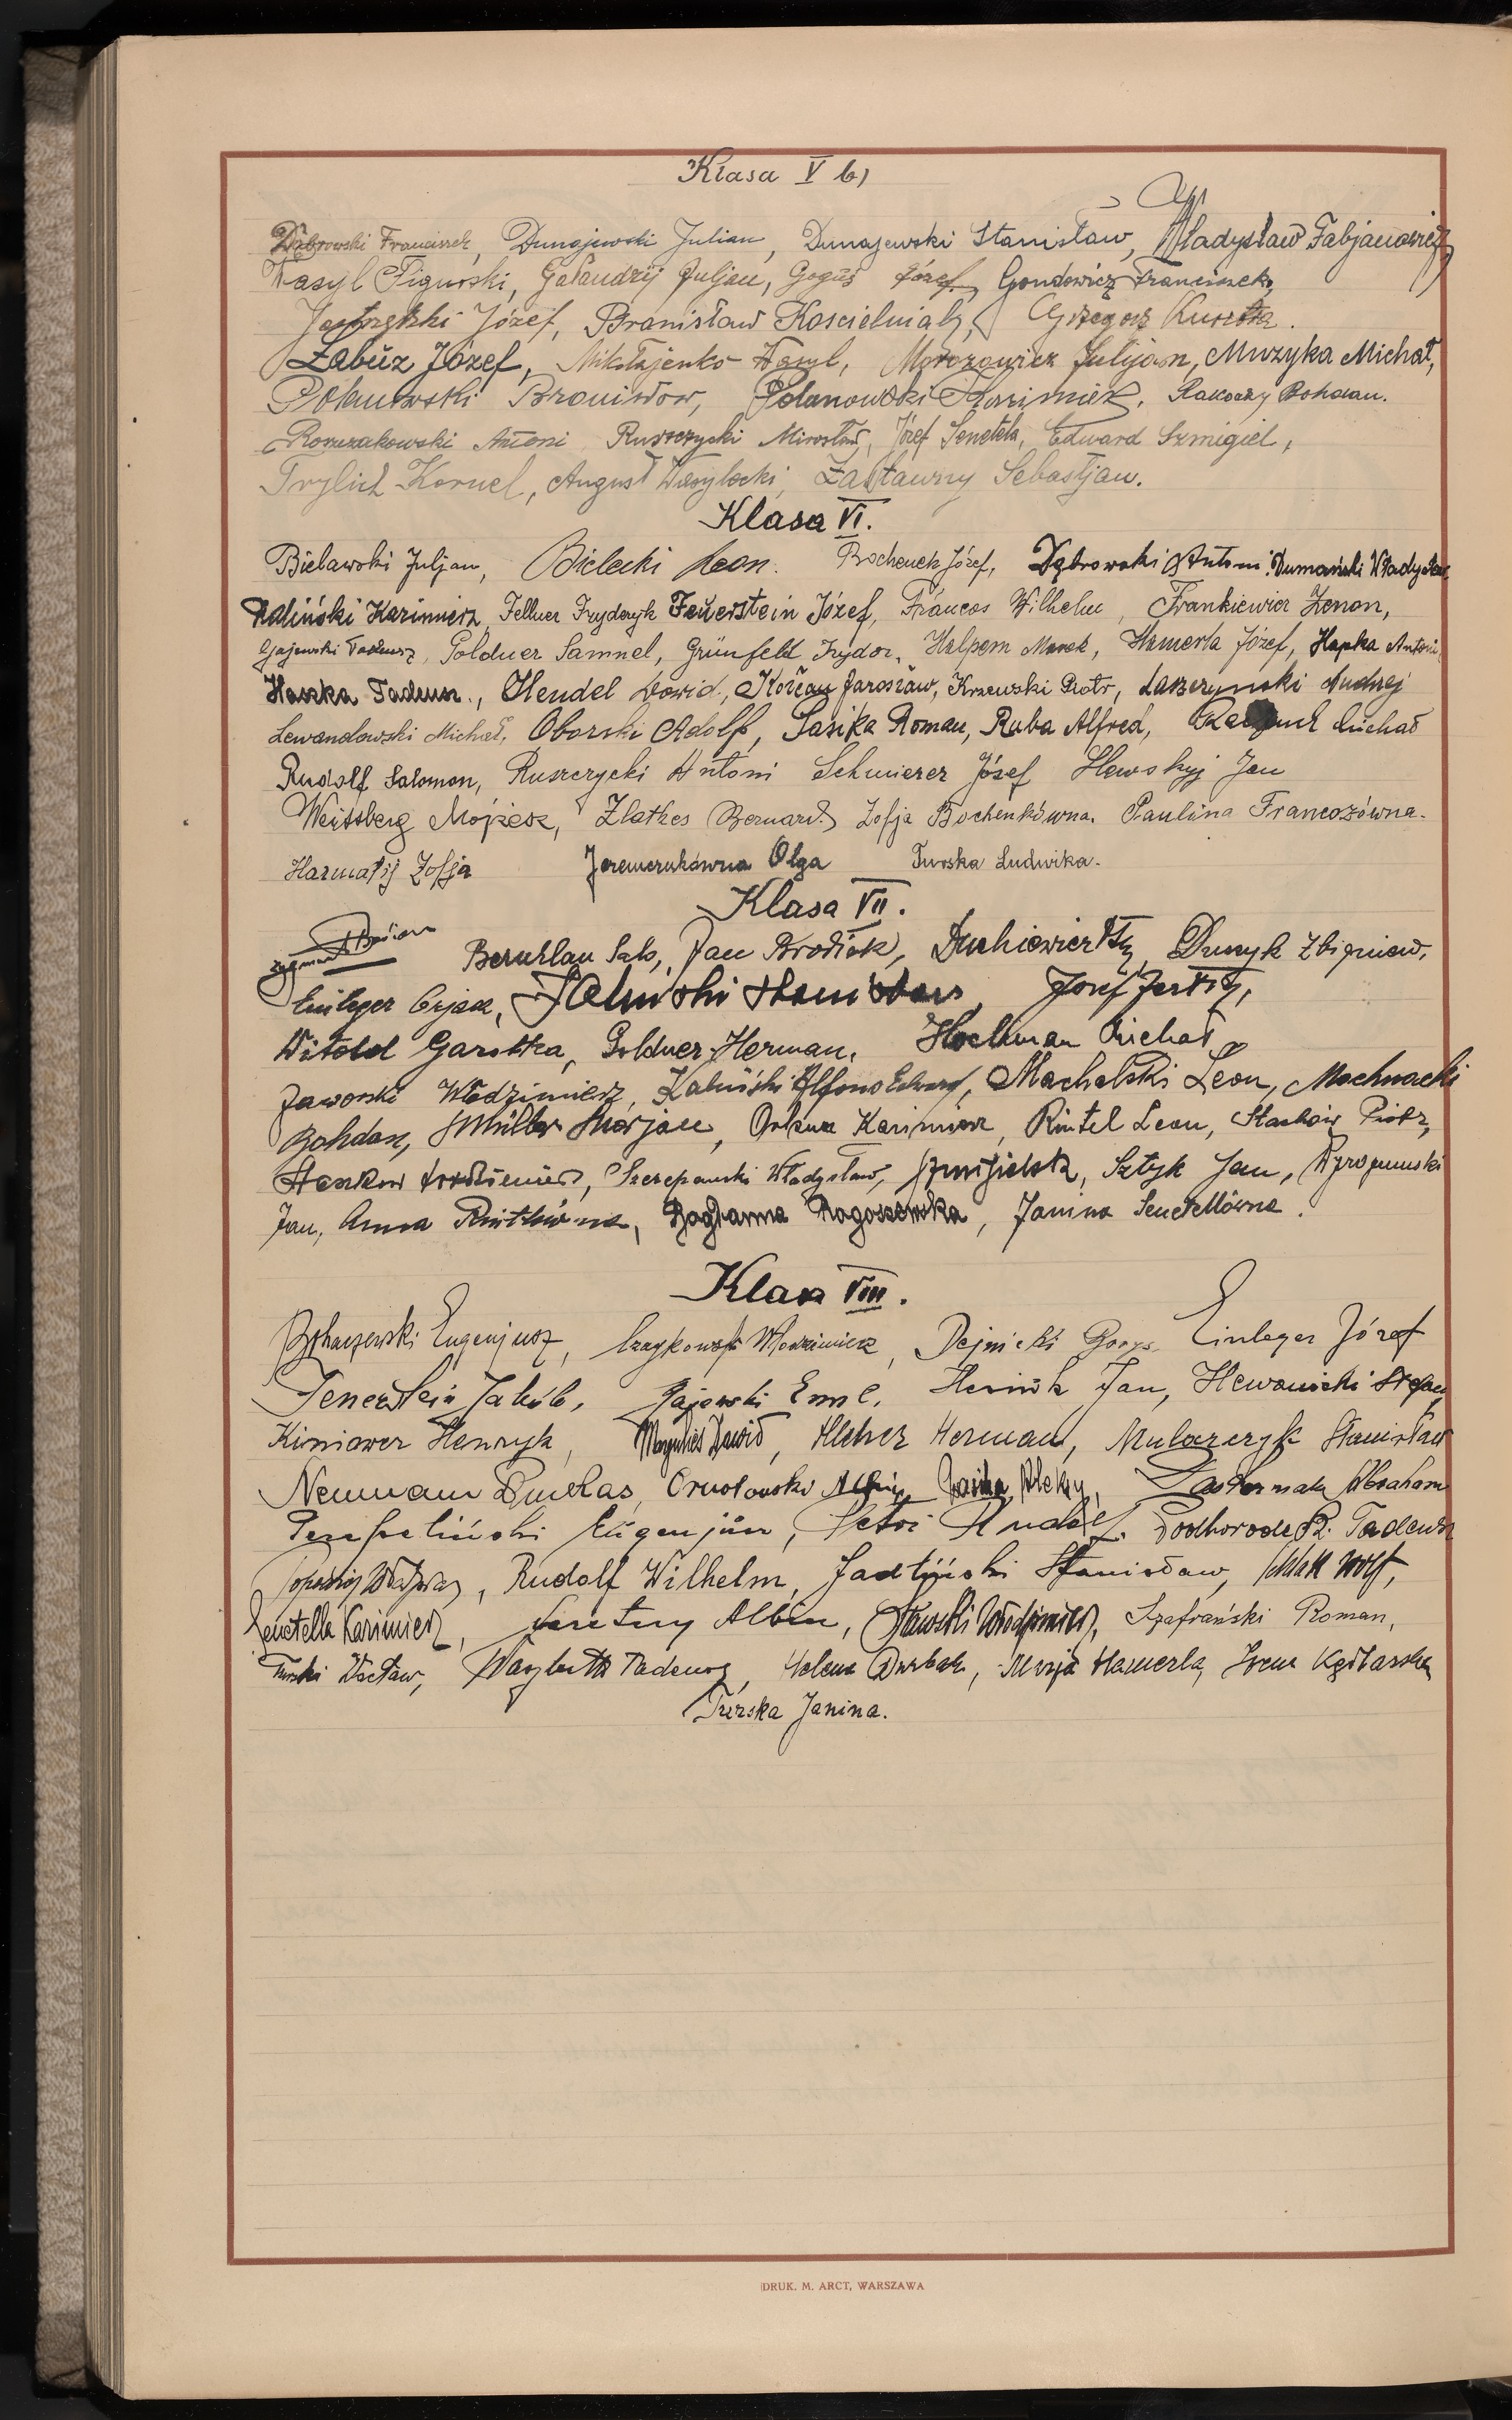 Klasa V b)
Dąbrowski Franciszek, Dunajewski Julian, Dunajewski Stanisław, Władysław Fabjanowicz,
Wasyl Figurski, Gałandzij Juljan, Goguś Józef, Gondowicz Franciszek,
Józef, Bronisław Kościelniak, Grzegorz
Łabuz Józef, Mikłajenko Wasyl, Morozowicz Julijan, Muzyka Michał,
Polanowski Bronisław, Polanowski Kazimierz, Rakoczy Bohdan.
Antoni Ruszczycki Mirosław, Józef Senetela, Edward Szmigiel,
Trylich Kornel, August Wasylecki, Zastawny Sebastjan.
Klasa VI.
Bielawski Juljan, Bielecki Leon. Bochenek Józef, Dąbrowski Antoni, Dumański Władysław
Kazimierz, Fellner Fryderyk Feuerstein Józef, Francos Wilhelm, Frankiewicz Zenon,
Gajewski Tadeusz, Goldner Samuel, Grünfeld Izydor, Halpern Marek, Hamerla Józef, Hapka Antoni
Haszka Tadeusz., Hendel Dawid, Jarosław, Krzewski Piotr, Laszczyński Andrzej
Lewandowski Michał, Oborski Adolf, Pasika Roman, Raba Alfred, Michał
Rudolf Salomon, Ruszczycki Antoni Schmierer Józef Sławskyj Jan
Weissberg Mojżesz, Zlatkes Bernard. Zofja Bochenkówna. Paulina Francozówna.
Harmatij Zofja Jeremczukówna Olga Turska Ludwika.
Klasa VII.
Zygmunt Jan Brodiak, Duchiewicz Dmyk Zbigniew,
Einleger Ozjasz, Faliński Stanisław, Józef
Witold Garstka, Goldner Herman, Hochman Michał
Jaworski Włodzimierz, Kaliński Alfons Edward, Machalski Leon, Mochnacki
Bohdan, Müller Marjan, Kazimierz, Rintel Leon, Stachów Piotr,
Szczepański Władysław, Sztyk Jan,
Jan, Anna Rogoszewska, Janina Senetellówna.
Klasa VIII.
Eugenjusz, Włodzimierz, Dejnicki Einleger Józef
Feuerstein Jakób, Gajewski Emil, Jan, Stefan
Kiniower Henryk, Margulies Dawid, Herman, Mularczyk Stanisław
Neumann Ornotowski Pasika Aleksy, Pasternak Abraham
Perepeliński Eugenjusz, Petri Rudolf. Podhorodecki Tadeusz
Rudolf Wilhelm, Sadliński Stanisław, Schlak Wolf,
Senetella Kazimierz, Albin, Sławski Włodzimierz, Szafrański Roman,
Turski Wacław, Tadeusz, Helena Marja Hamerla, Irena
Turska Janina.
DRUK. M. ARCT, WARSZAWA